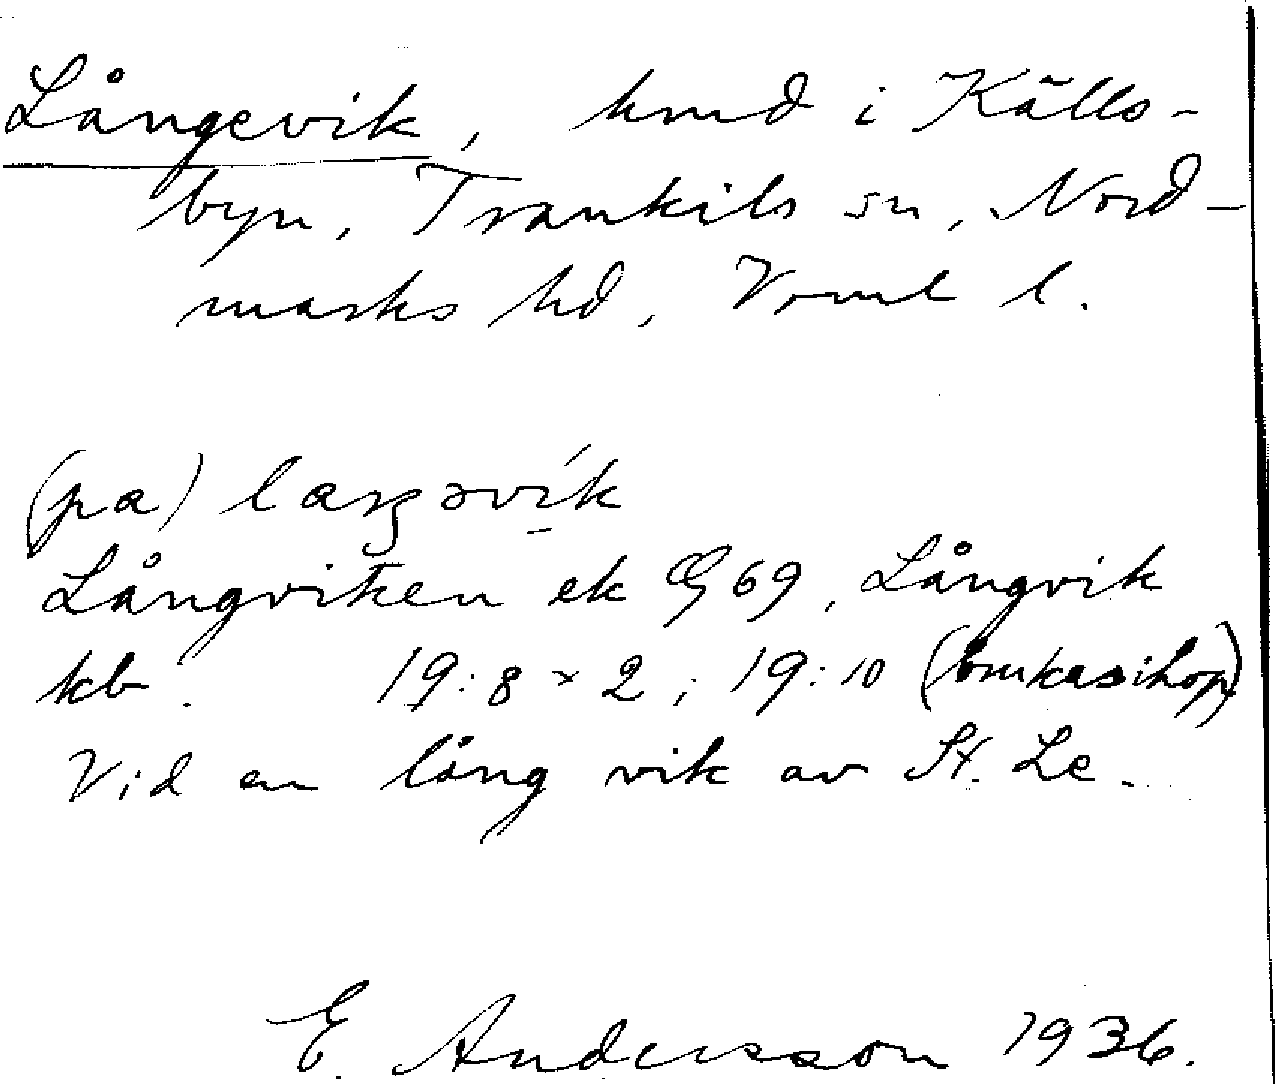 Långevik, hmd i Källs-
byn, Trankils sn, Nord-
marks hd, Vrml l.
(pa) laŋəvik
Långviken ek G 69, Långvik
kb. 19:8 × 2; 19:10 (brukas ihop)
Vid en lång vik av St. Le.
E. Andersson 1936.